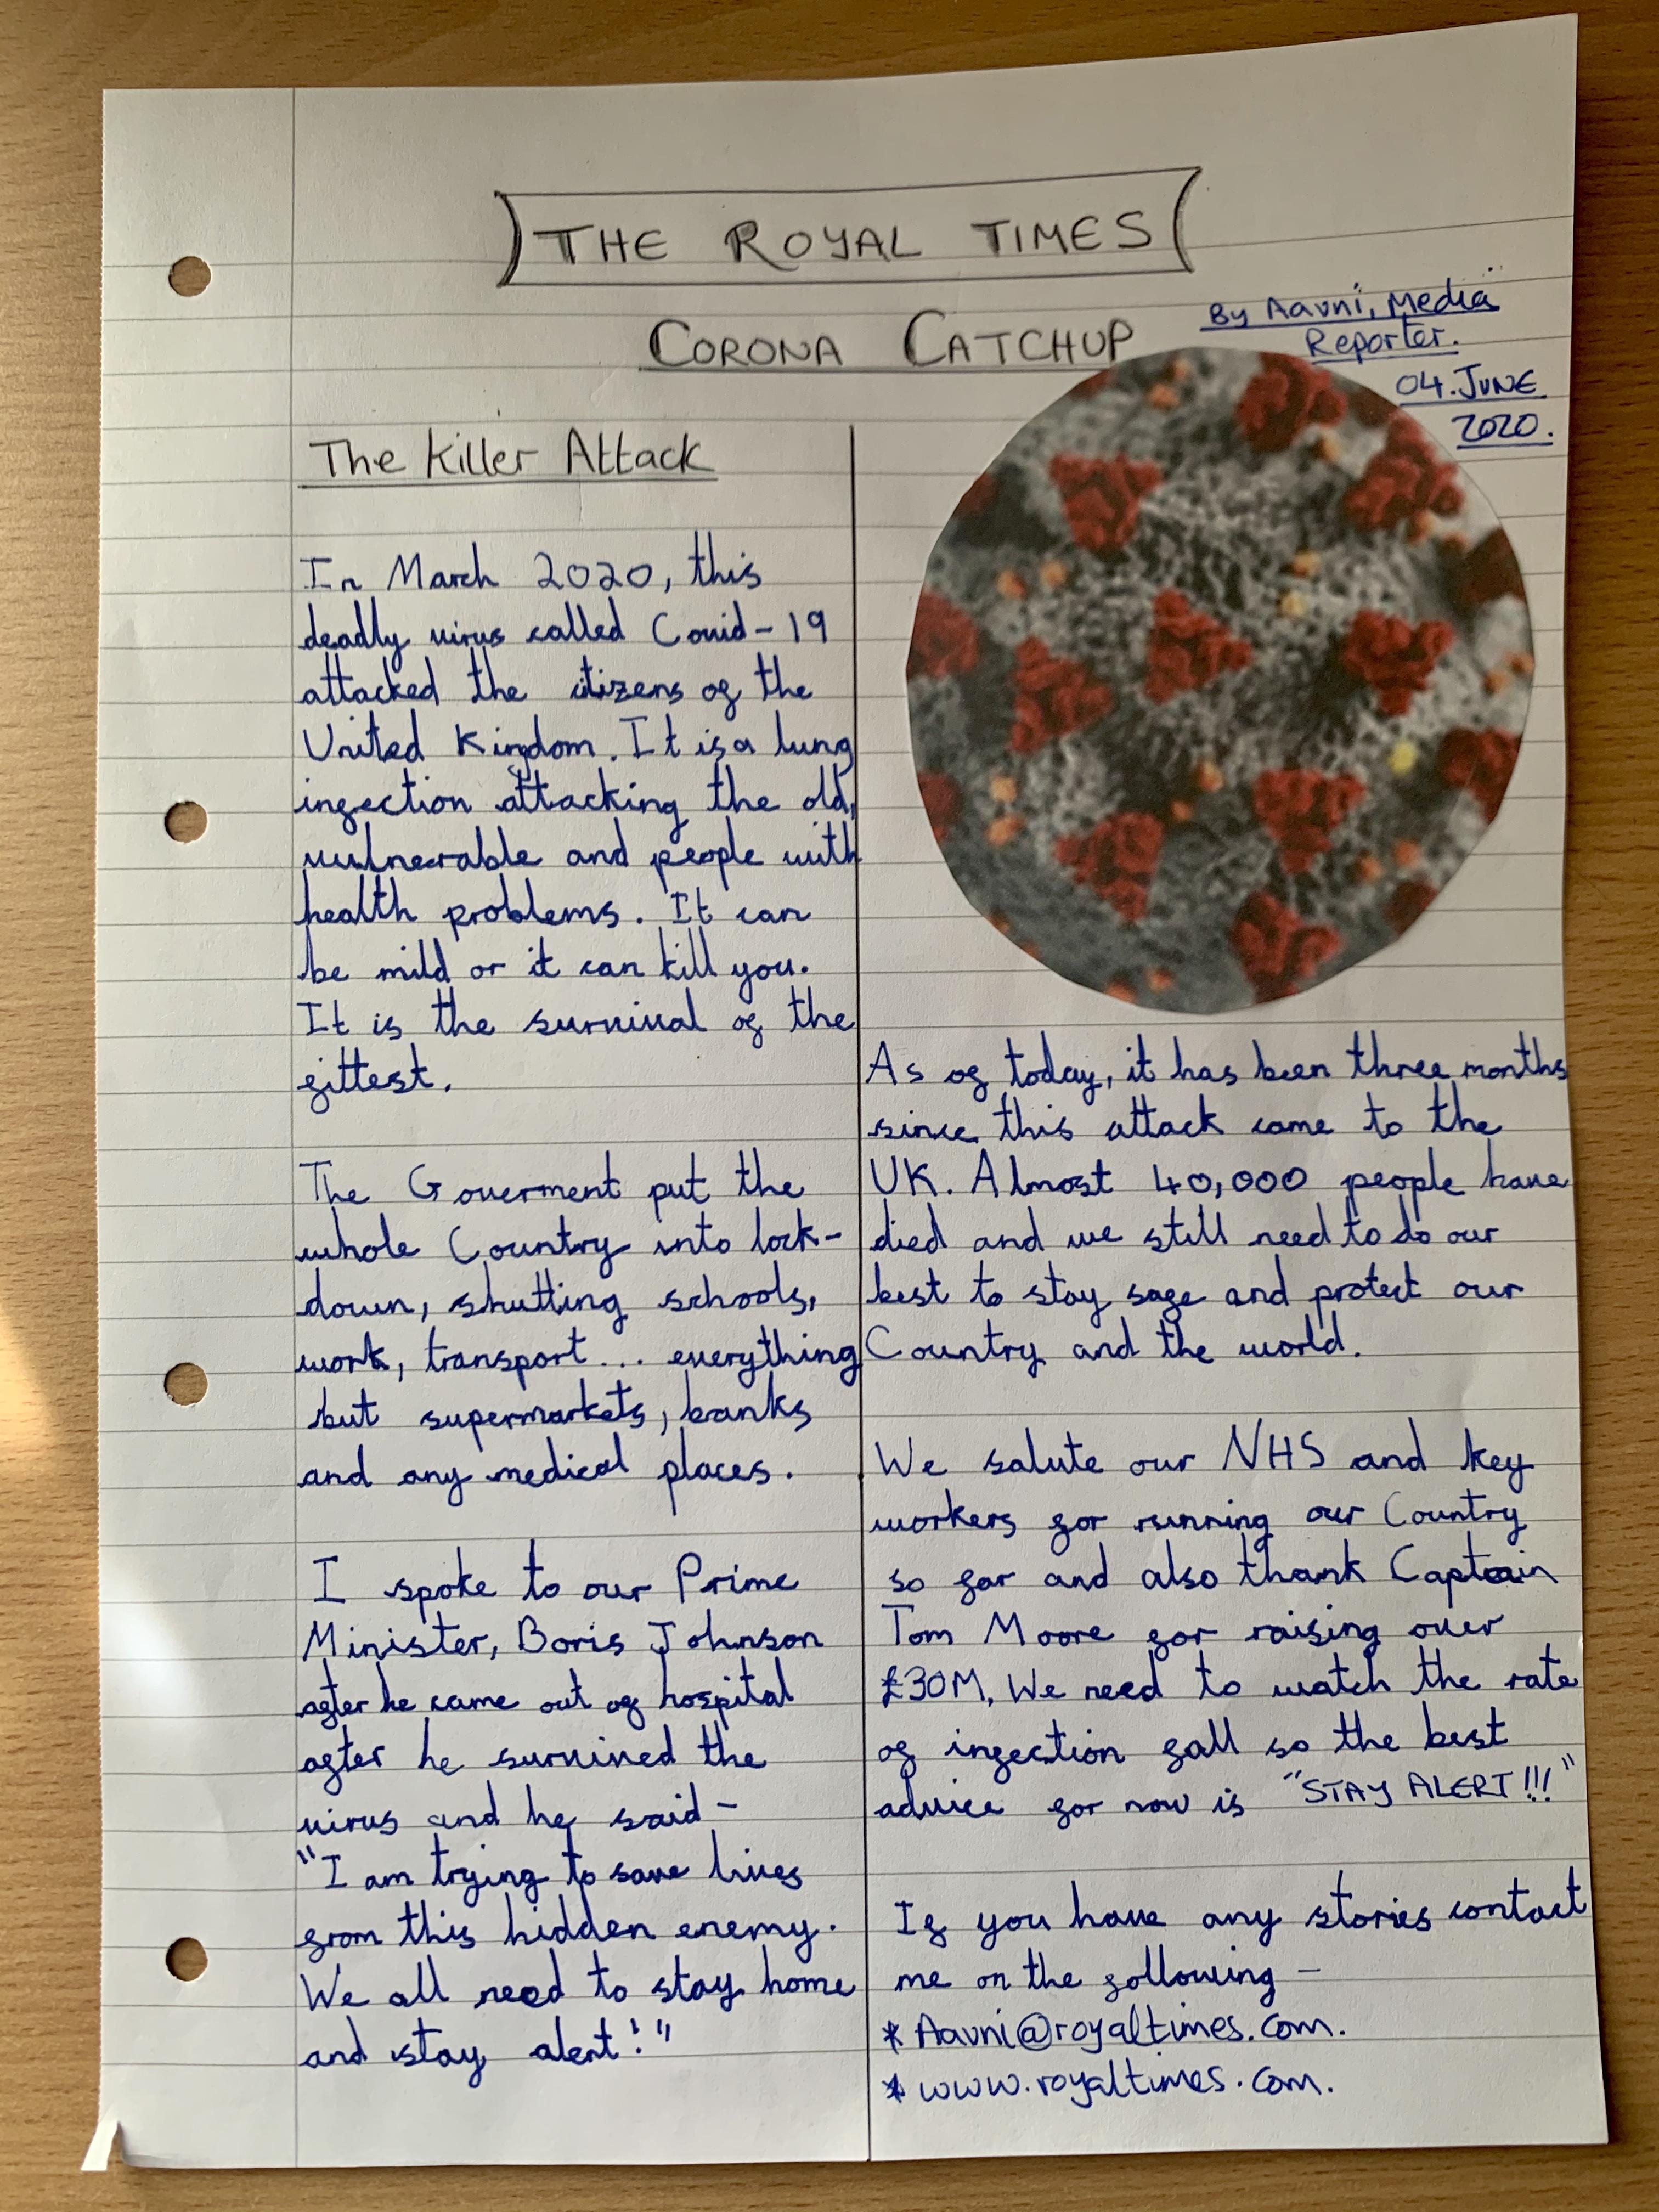 THE ROYAL TIMES
CORONA CATCHUP
By Aavni, Media
Reporter.
04. JUNE
2020.
The Killer Attack
In March 2020, this
deadly virus called Covid-19
attacked the citizens of the
United Kingdom. It is a lung
infection attacking the old,
vulnerable and people with
health problems. It can
be mild or it can kill you.
It is the survival of the
fittest.
The Goverment put the
whole Country into lock-
down, shutting schools,
work, transport... everything
but supermarkets, banks
and any medical places.
I spoke to our Prime
Minister, Boris Johnson
after he came out of hospital
after he survived the
virus and he said-
"I am trying to save lives
from this hidden enemy.
We all need to stay home
and stay alert!"
As of today, it has been three months
since this attack came to the
UK. Almost 40,000 people have
died and we still need to do our
best to stay safe and protect our
Country and the world.
We salute our NHS and key
workers for running our Country
so far and also thank Captain
Tom Moore for raising over
£30M. We need to watch the rate
of infection fall so the best
advice for now is "STAY ALERT!!!"
If you have any stories contact
me on the following -
* Aavni@royaltimes.com.
* www.royaltimes.com.